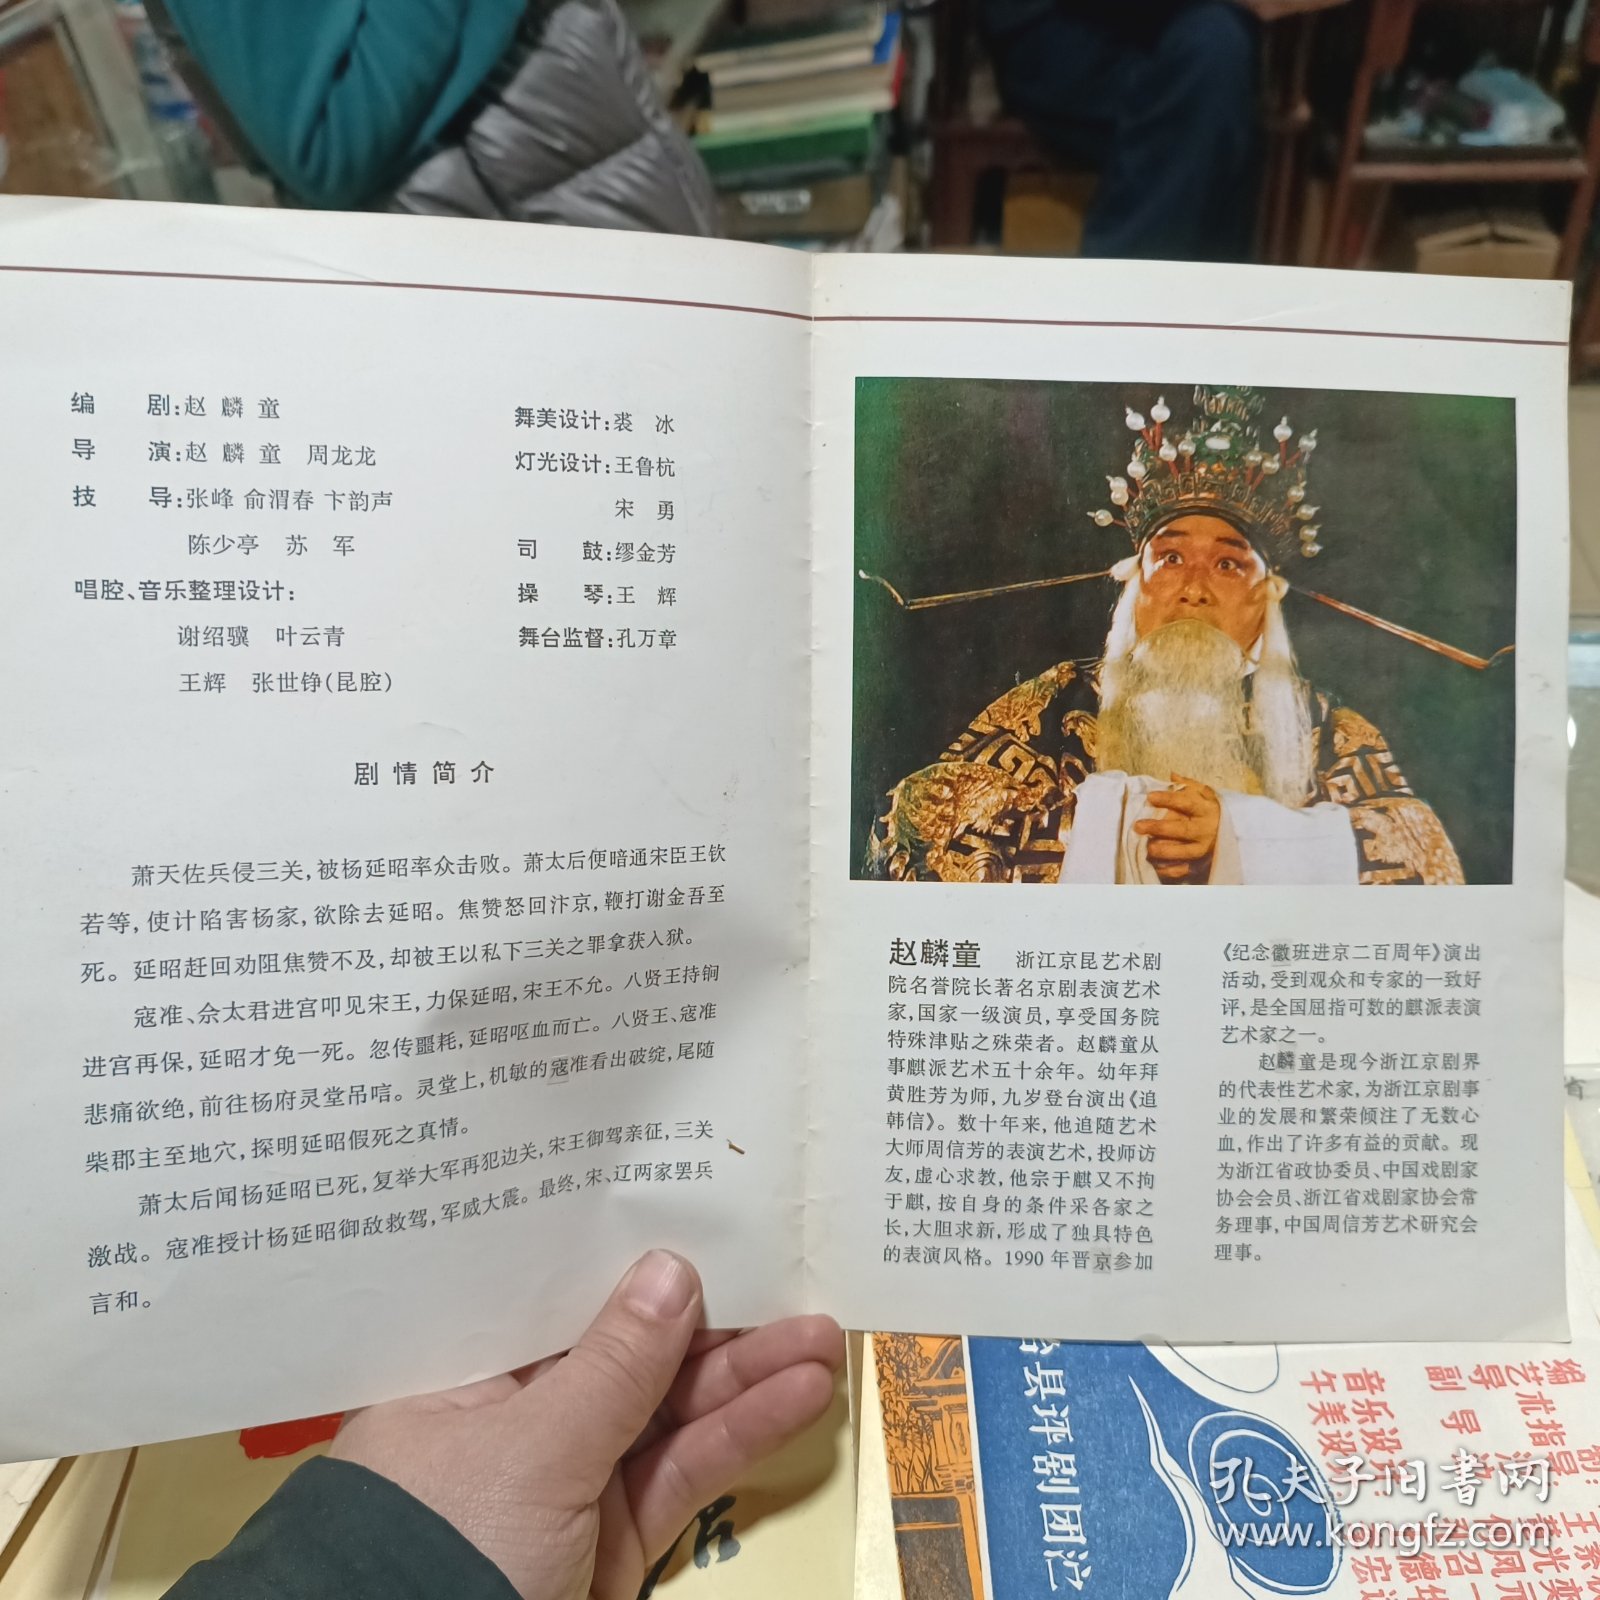 编　　剧:赵 麟 童
导　　演:赵 麟 童　周龙龙
技　　导:张峰 俞渭春 卞韵声
陈少亭　苏　军
唱腔、音乐整理设计:
谢绍骥　叶云青
王辉　张世铮(昆腔)
舞美设计:裘　冰
灯光设计:王鲁杭
宋　勇
司　　鼓:缪金芳
操　　琴:王　辉
舞台监督:孔万章
剧 情 简 介
萧天佐兵侵三关,被杨延昭率众击败。萧太后便暗通宋臣王钦
若等,使计陷害杨家,欲除去延昭。焦赞怒回汴京,鞭打谢金吾至
死。延昭赶回劝阻焦赞不及,却被王以私下三关之罪拿获入狱。
寇准、佘太君进宫叩见宋王,力保延昭,宋王不允。八贤王持锏
进宫再保,延昭才免一死。忽传噩耗,延昭呕血而亡。八贤王、寇准
悲痛欲绝,前往杨府灵堂吊唁。灵堂上,机敏的寇准看出破绽,尾随
柴郡主至地穴,探明延昭假死之真情。
萧太后闻杨延昭已死,复举大军再犯边关,宋王御驾亲征,三关
激战。寇准授计杨延昭御敌救驾,军威大震。最终,宋、辽两家罢兵
言和。
赵麟童　浙江京昆艺术剧
院名誉院长著名京剧表演艺术
家,国家一级演员,享受国务院
特殊津贴之殊荣者。赵麟童从
事麒派艺术五十余年。幼年拜
黄胜芳为师,九岁登台演出《追
韩信》。数十年来,他追随艺术
大师周信芳的表演艺术,投师访
友,虚心求教,他宗于麒又不拘
于麒,按自身的条件采各家之
长,大胆求新,形成了独具特色
的表演风格。1990 年晋京参加
《纪念徽班进京二百周年》演出
活动,受到观众和专家的一致好
评,是全国屈指可数的麒派表演
艺术家之一。
赵麟童是现今浙江京剧界
的代表性艺术家,为浙江京剧事
业的发展和繁荣倾注了无数心
血,作出了许多有益的贡献。现
为浙江省政协委员、中国戏剧家
协会会员、浙江省戏剧家协会常
务理事,中国周信芳艺术研究会
理事。
县评剧团
孔夫子旧书网
www.kongfz.com